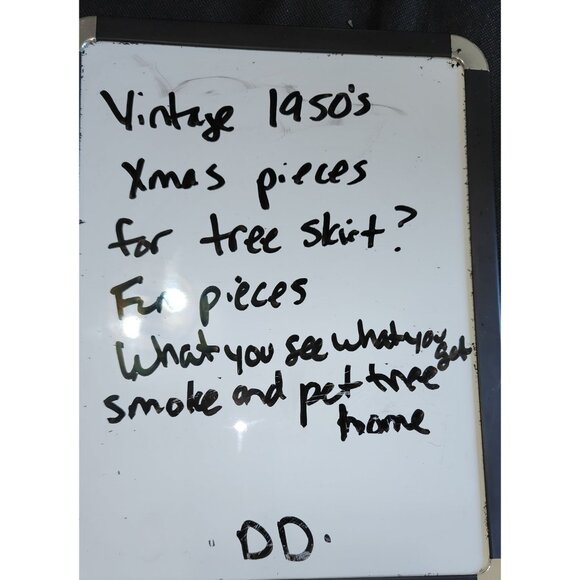 Vintage 1950's
Xmas pieces
for tree skirt?
Fun pieces
What you see what you get
smoke and pet free
home
DD.